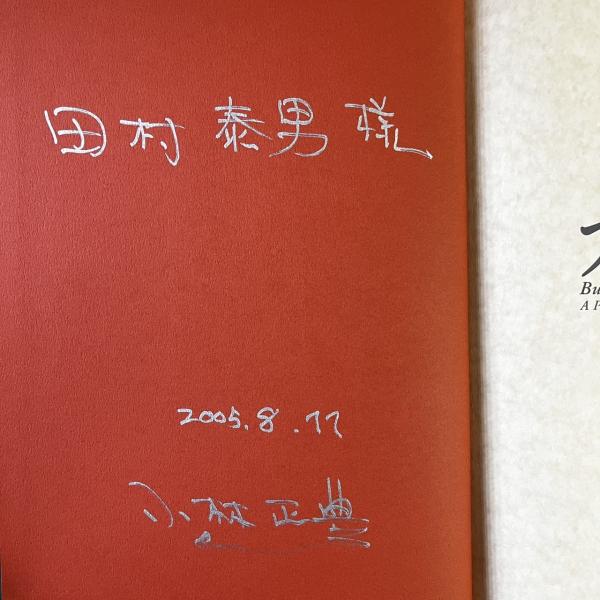 田村 泰男 様
2005.8.11
小林 正典
Bu
A P